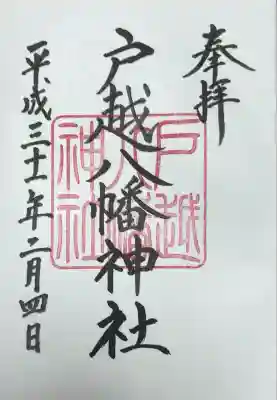 奉拝
戸越八幡神社
平成三十一年二月四日
戸越
八幡
神社